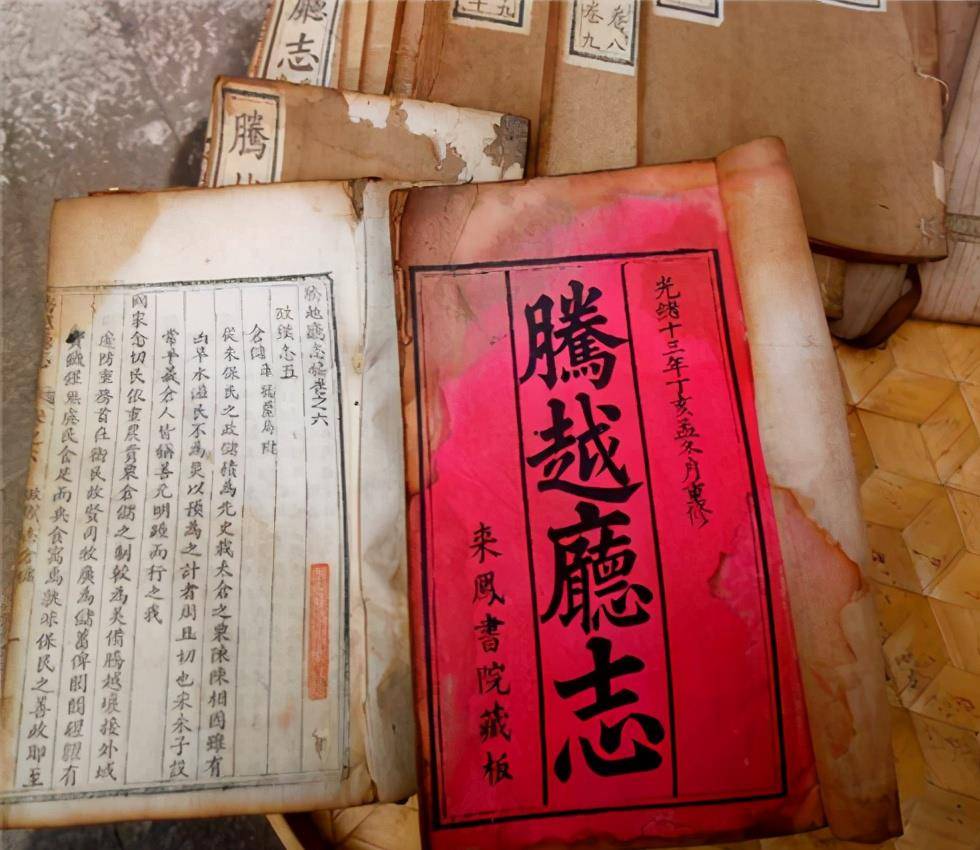 廳志
卷八
卷九
騰
光緒十三年丁亥孟冬月重修
騰越廳志
来鳳書院藏板
騰越廳志稿卷之六
志五
倉儲
從来保民之政儲積為先史載太倉之粟陳陳相因雖有
凶旱水溢民不為災以預為之計者周且切也宋朱子設
常平義倉人皆稱善元明踵而行之我
國家念切民依重農貴粟倉儲之制較為美備騰越壤接外域
邊防重務首在衛民故賢司牧廣為儲蓄俾閭閻 有
民食足而兵食寓焉 保民之善政即至